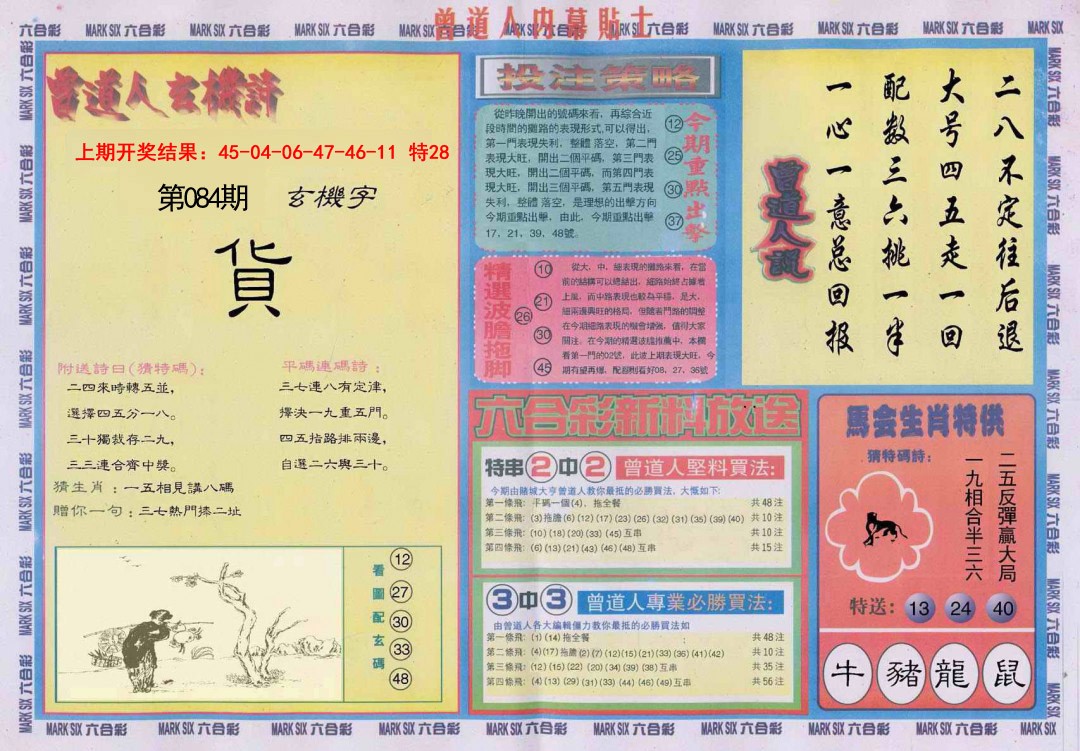 曾道人内幕貼士
六合彩 MARK SIX 六合彩 MARK SIX 六合彩 MARK SIX 六合彩 MARK SIX 六合彩 MARK SIX 六合彩 MARK SIX 六合彩 MARK SIX 六合彩 MARK SIX 六合彩 MARK SIX 六合彩 MARK SIX
曾道人玄機詩
上期开奖结果：45-04-06-47-46-11 特28
第084期 玄機字
貨
附送詩曰(猜特碼)：
二四來時轉五並，
選擇四五分一八。
三十獨裁存二九，
三三連合齊中獎。
平碼連碼詩：
三七連八有定津，
擇決一九重五門。
四五指路排兩邊，
自選二六與三十。
猜生肖：一五相見講八碼
贈你一句：三七熱門捧二址
看圖配玄碼
12
27
30
33
48
投注策略
從昨晚開出的號碼來看，再綜合近
段時間的攤路的表現形式,可以得出，
第一門表現失利，整體 落空，第二門
表現大旺，開出二個平碼，第三門表
現大旺，開出二個平碼，而第四門表
現大旺，開出三個平碼，第五門表現
失利，整體 落空，是理想的出擊方向
今期重點出擊，由此，今期重點出擊
17．21，39．48號。
今期重點出擊
12
25
30
37
精選波膽拖脚
10
21
26
30
45
從大，中，細表現的攤路來看，在當
前的結構可以總結出，細路始終占據着
上風，而中路表現也較為平穩，是大，
細兩邊興旺的格局，但隨着門路的調整
在今期細路表現的機會增強，值得大家
關注。在今期的精選波膽推薦中，本欄
看第一門的02號，此波上期表現大旺，今
期有望再爆，配膽則看好08，27，36號
曾道人說
二八不定往后退
大号四五走一回
配数三六挑一半
一心一意总回报
六合彩新料放送
特串2中2 曾道人堅料買法:
今期由賭城大亨曾道人教你最抵的必勝買法，大慨如下:
第一條飛: 平碼一個(4)，拖全餐 共48注
第二條飛: (3)拖膽(6)(12)(17)(23)(26)(32)(31)(35)(39)(40) 共10注
第三條飛: (10)(18)(20)(33)(45)互串 共10注
第四條飛: (6)(13)(21)(43)(46)(48)互串 共15注
3中3 曾道人專業必勝買法:
由曾道人各大編輯傾力教你最抵的必勝買法如
第一條飛: (1)(14)拖全餐 共48注
第二條飛: (4)(17)拖膽(2)(7)(12)(15)(21)(33)(36)(41)(42) 共10注
第三條飛: (12)(15)(22)(20)(34)(39)(38)互串 共35注
第四條飛: (4)(13)(29)(31)(33)(44)(46)(49)互串 共56注
馬会生肖特供
猜特碼詩:
二五反彈贏大局
一九相合半三六
特送: 13 24 40
牛 豬 龍 鼠
MARK SIX 六合彩 MARK SIX 六合彩 MARK SIX 六合彩 MARK SIX 六合彩 MARK SIX 六合彩 MARK SIX 六合彩 MARK SIX 六合彩 MARK SIX 六合彩 MARK SIX 六合彩 MARK SIX